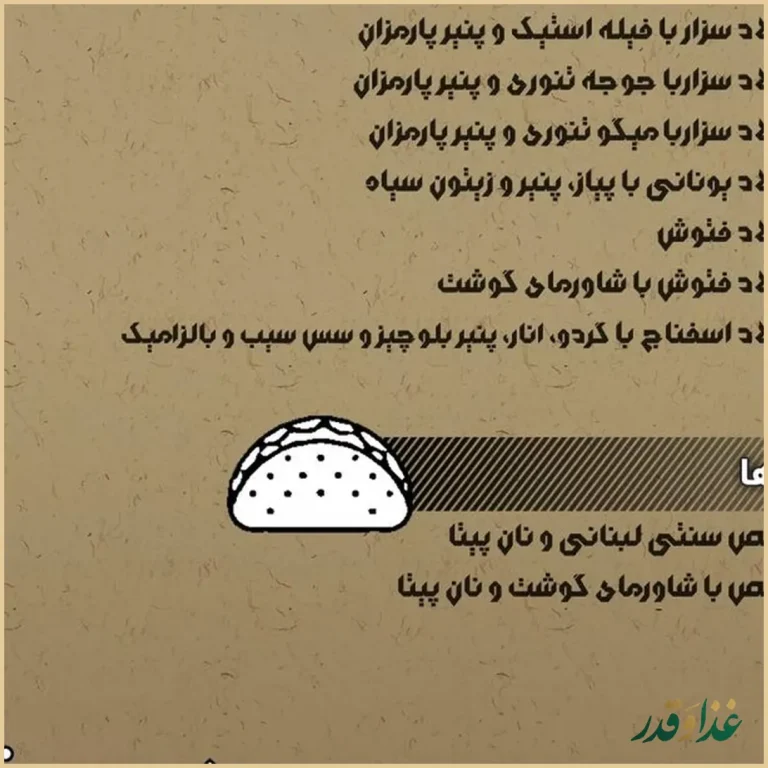 لاد سزار با فیله استیک و پنیر پارمزان
لاد سزار با جوجه تنوری و پنیر پارمزان
لاد سزار با میگو تنوری و پنیر پارمزان
لاد یونانی با پیاز، پنیر و زیتون سیاه
لاد فتوش
لاد فتوش با شاورمای گوشت
لاد اسفناج با گردو، انار، پنیر بلوچیز و سس سیب و بالزامیک
ها
مص سنتی لبنانی و نان پیتا
مص با شاورمای گوشت و نان پیتا
غذا و قدر